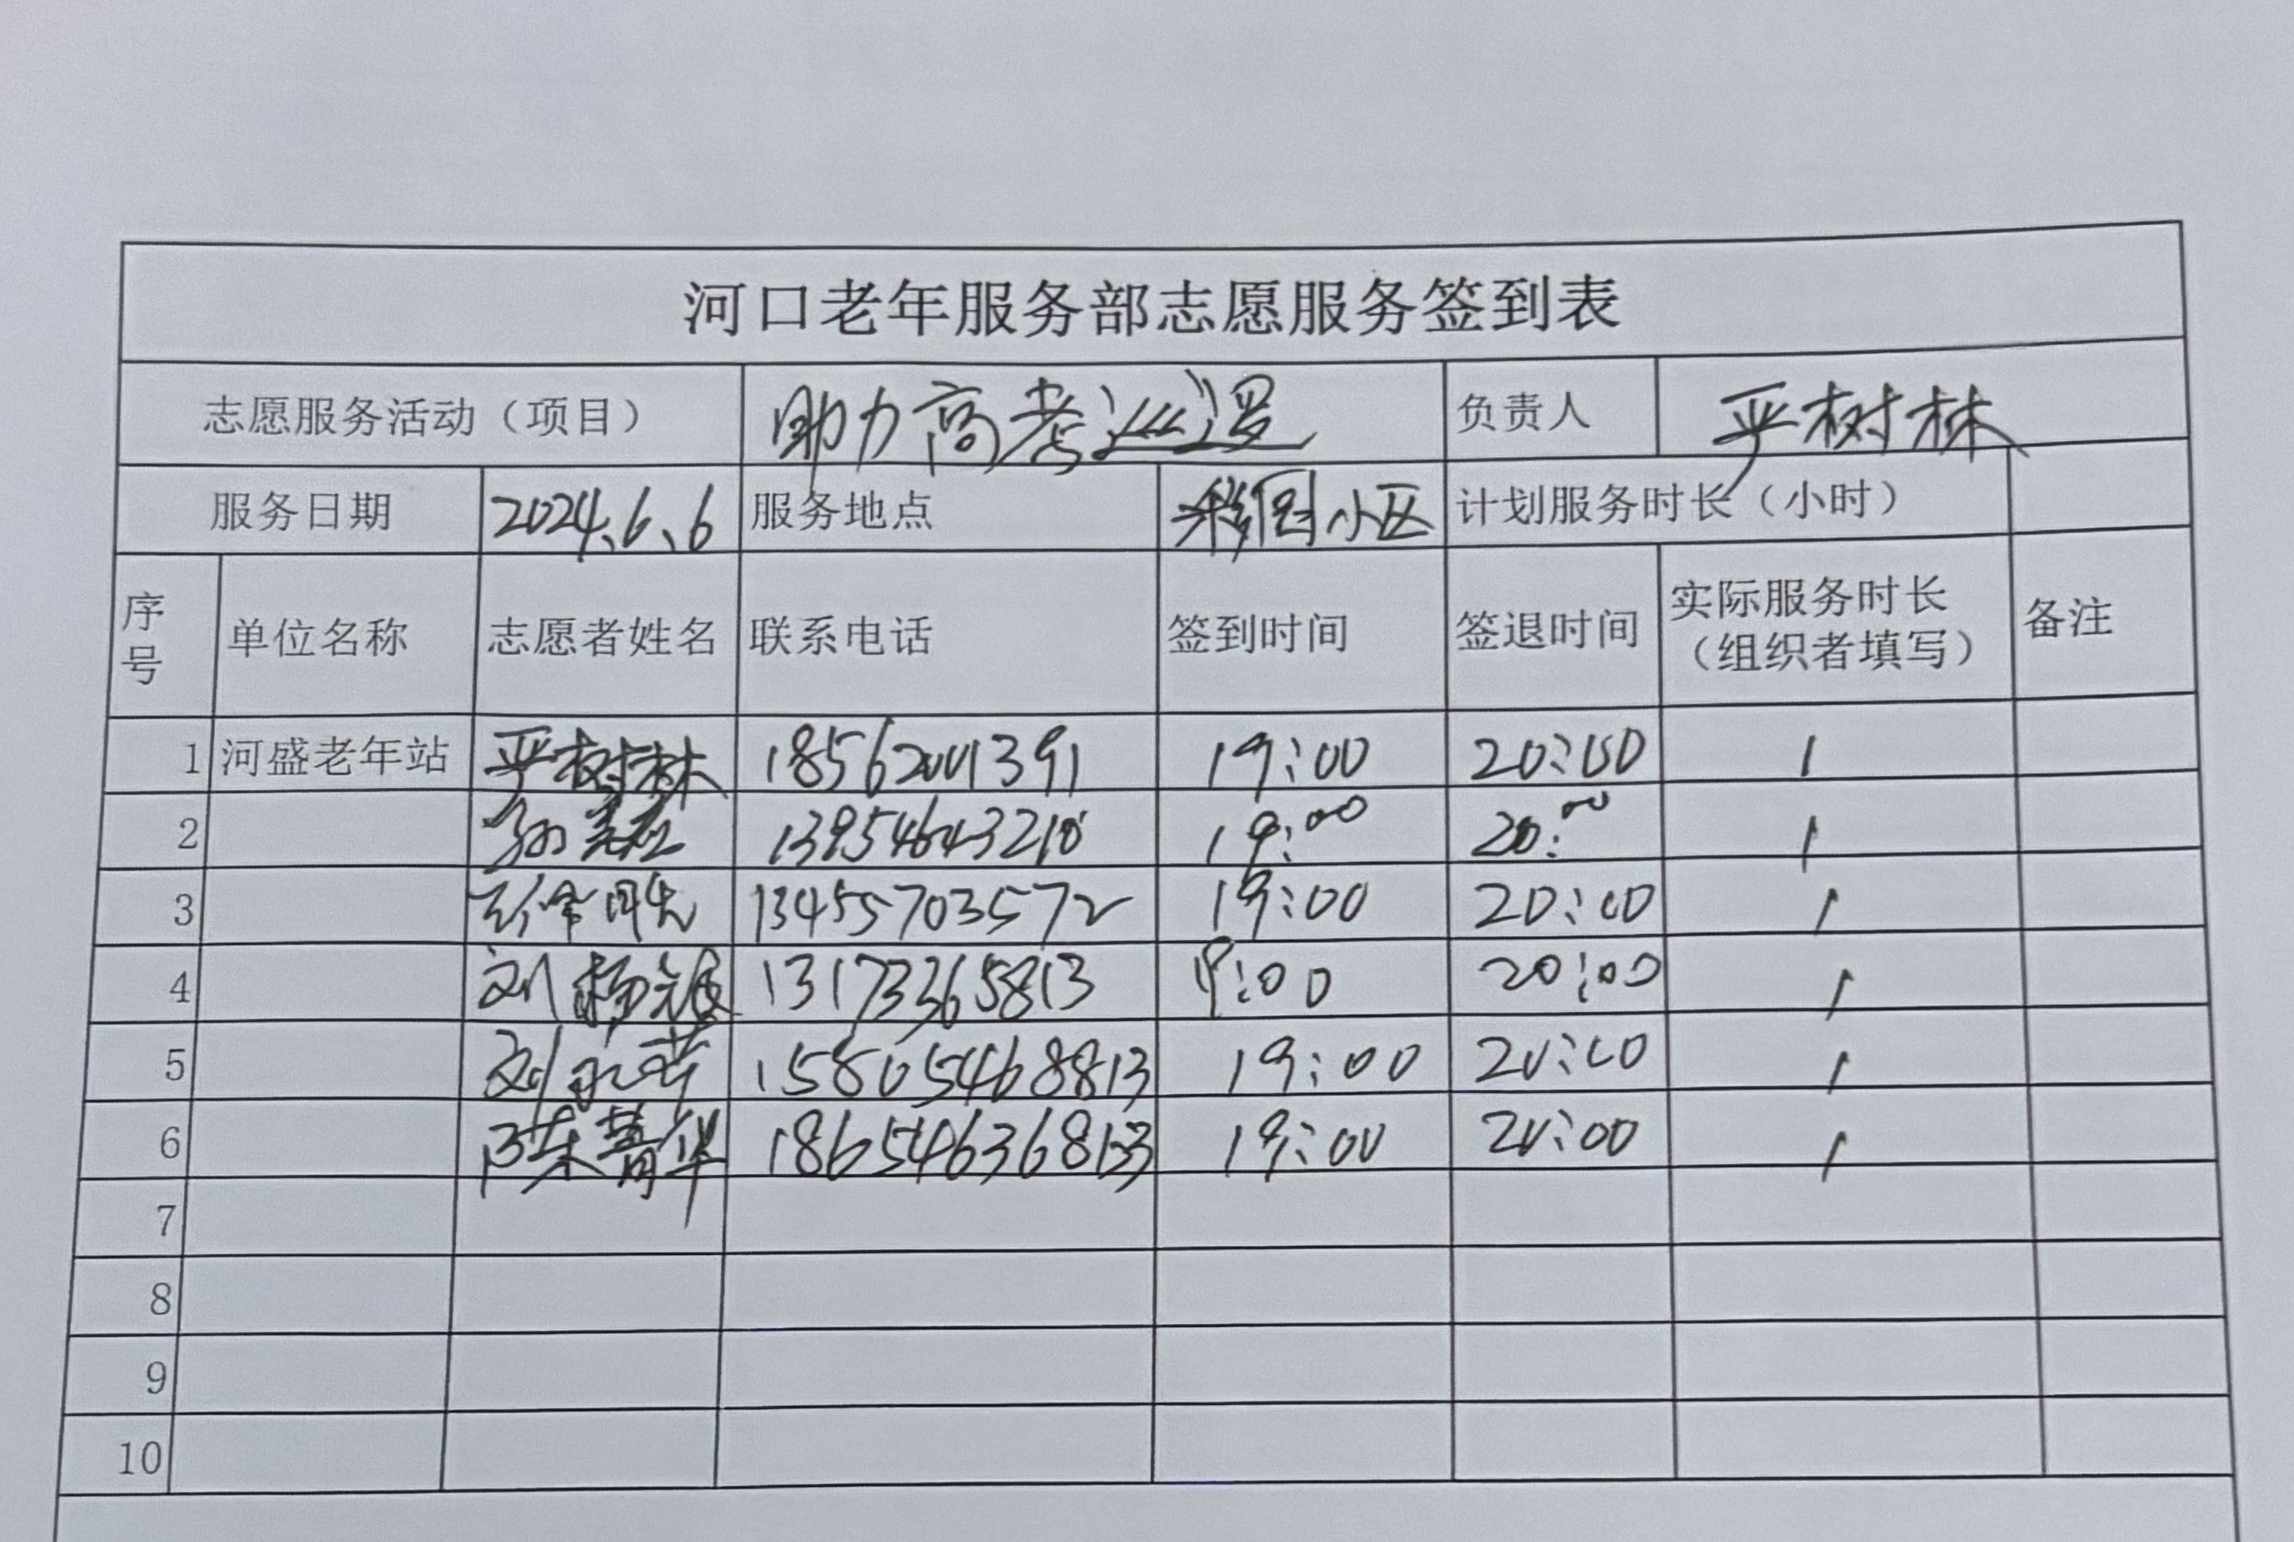 河口老年服务部志愿服务签到表
志愿服务活动（项目） 助力高考巡逻 负责人 严树林
服务日期 2024.6.6 服务地点 小区 计划服务时长（小时）
序号 单位名称 志愿者姓名 联系电话 签到时间 签退时间 实际服务时长（组织者填写） 备注
1 河盛老年站 严树林 18562001391 19:00 20:00 1
2 19:00 20:00 1
3 13455703572 19:00 20:00 1
4 13173365813 20:00 1
5 15805468813 19:00 20:00 1
6 陈菁华 19:00 20:00 1
7
8
9
10